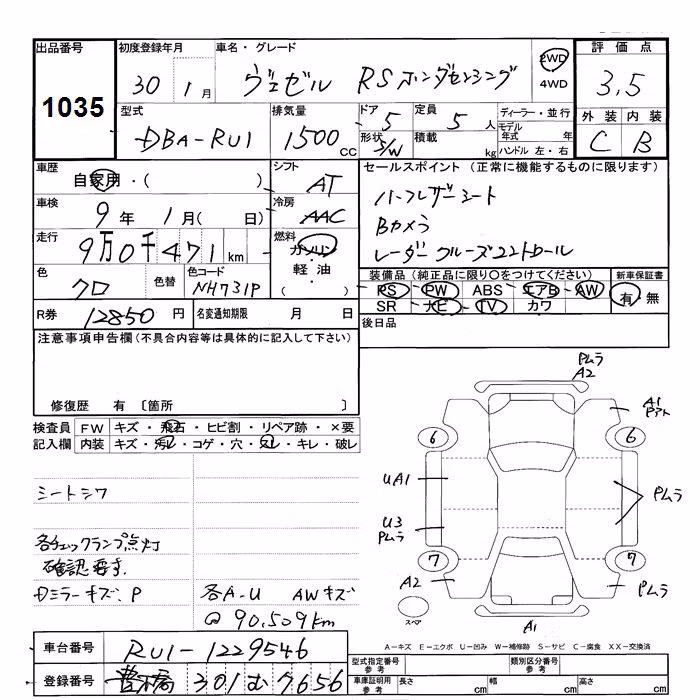 出品番号 初度登録年月 車名・グレード 評価点
1035 30 1月 ヴェゼル RSホンダセンシング 2WD 4WD 3.5
型式 排気量 ドア 定員 ディーラー・並行 外装 内装
DBA-RU1 1500 CC 5 5 人 モデル年式 年 C B
形状 S/W 積載 kg ハンドル 左・右
車歴 自家用・( ) シフト AT セールスポイント (正常に機能するものに限ります)
車検 9年 1月( 日) 冷房 AAC ハーフレザーシート
Bカメラ
走行 9万0千471km 燃料 ガソリン 軽油 ( ) レーダークルーズコントロール
色 クロ 色替 色コード NH731P 装備品 (純正品に限り○をつけてください) 新車保証書
RS PW ABS エアB AW 有・無
SR ナビ TV カワ
R券 12850 円 名変通知期限 月 日 後日品
注意事項申告欄 (不具合内容等は具体的に記入して下さい)
修復歴 有 〔箇所 〕
検査員 FW キズ・飛石・ヒビ割・リペア跡・×要
記入欄 内装 キズ・汚レ・コゲ・穴・スレ・キレ・破レ
シートシワ
各チェックランプ点灯
確認要す.
Dミラーキズ.P 各A-U AWキズ
@ 90,509km
Pムラ
A2
A1
Pアト
6 6
UA1
Pムラ
U3
Pムラ
7 7
A2 Pムラ
スペア
A1
A-キズ E-エクボ U-凹み W-補修跡 S-サビ C-腐食 XX-交換済
車台番号 RU1-1229546
型式指定番号 参考 類別区分番号 参考
登録番号 豊橋 301 む 7656
車庫証明用 参考 長さ cm 幅 cm 高さ cm